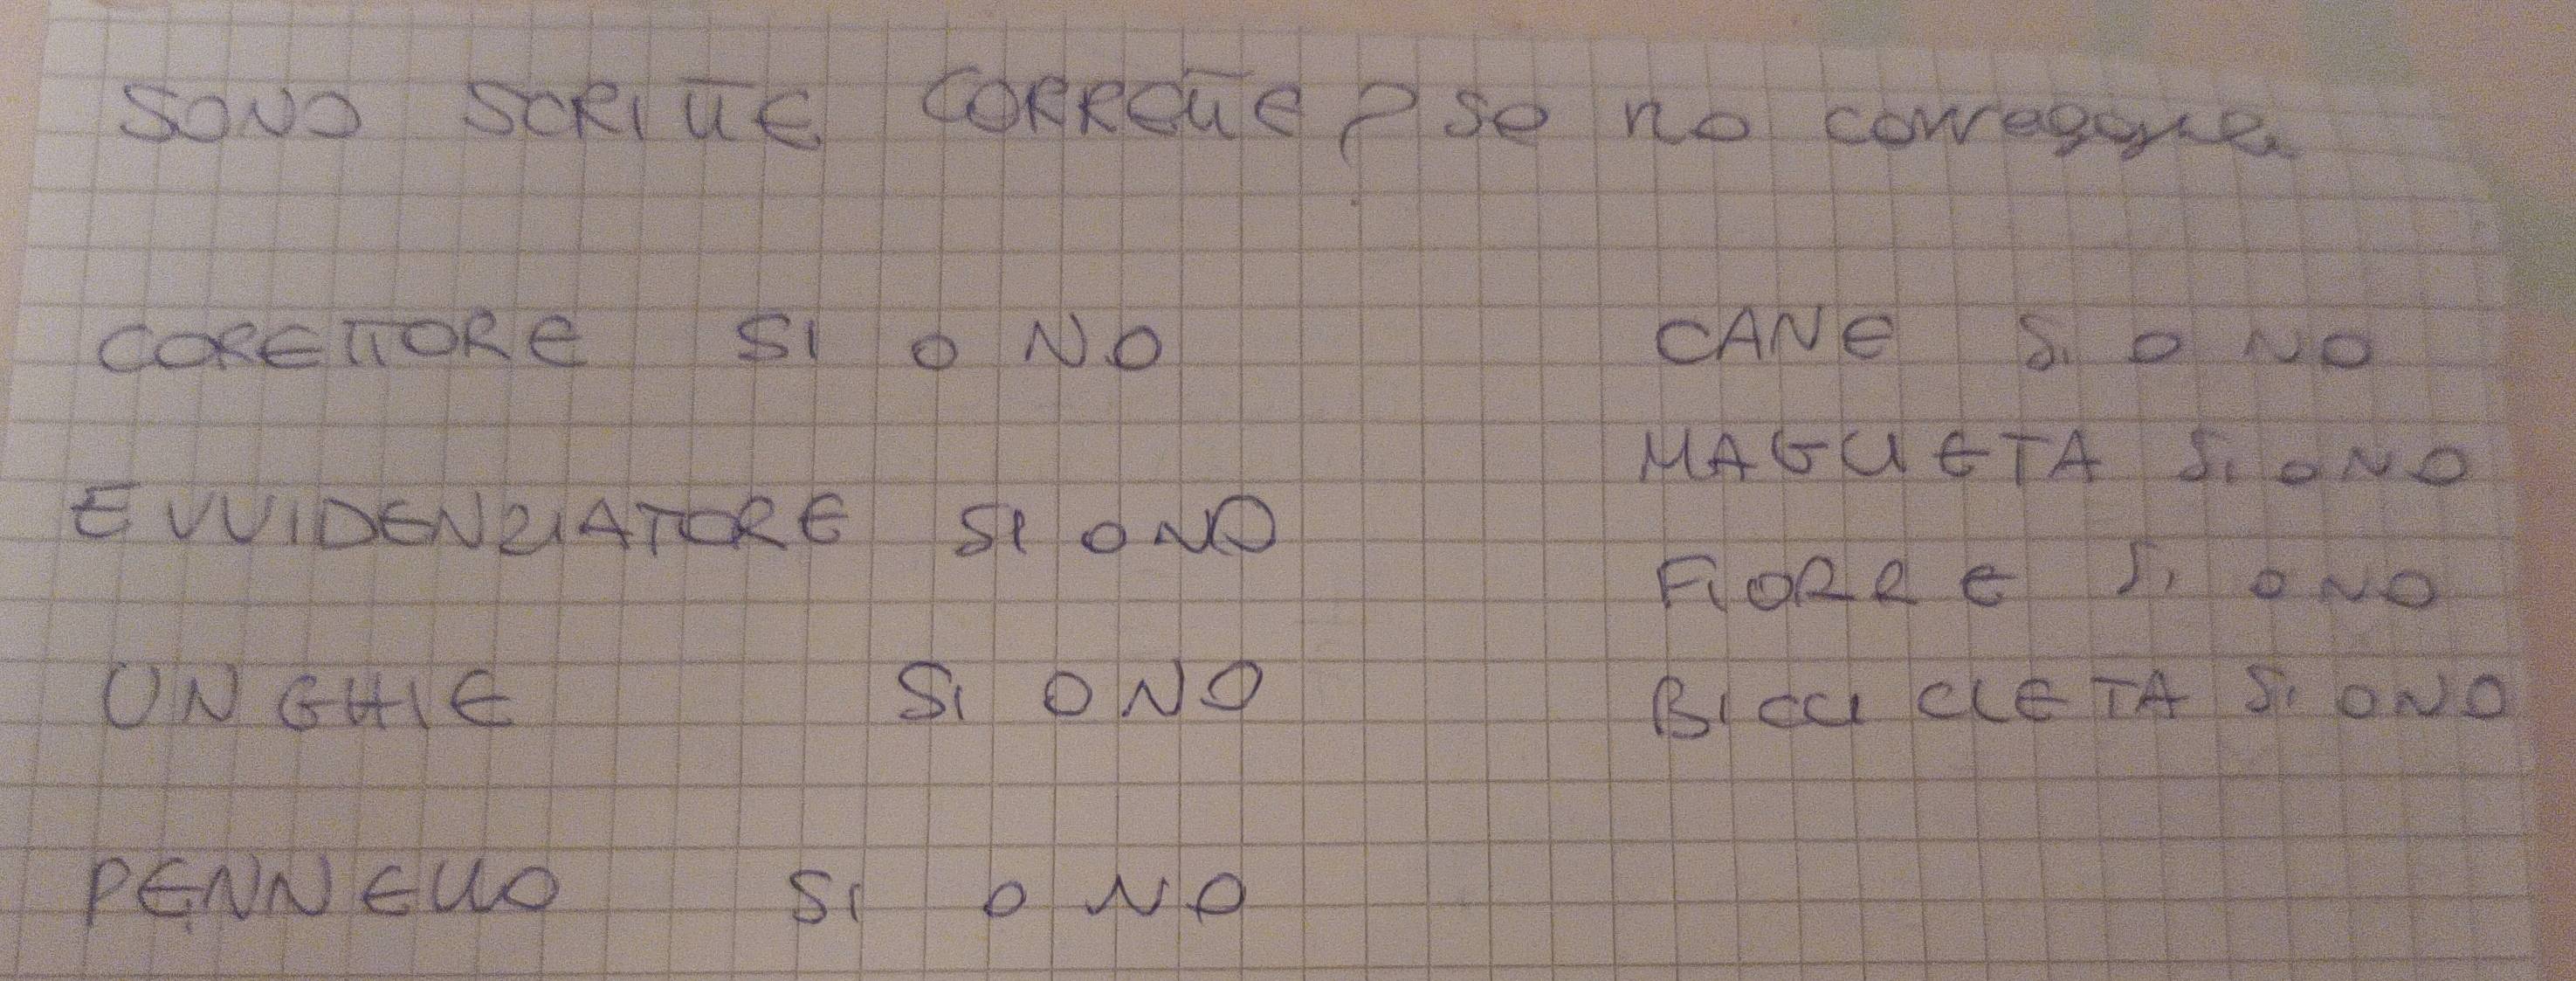 SONO SCRITTE CORRETTE? se no correggile
CORETTORE SI O NO
EVVIDENZIATORE SI O NO
UNGHIE SI O NO
PENNELLO SI O NO
CANE SI O NO
MAGLIETA SI O NO
FIORRE SI O NO
BICCICLETA SI O NO